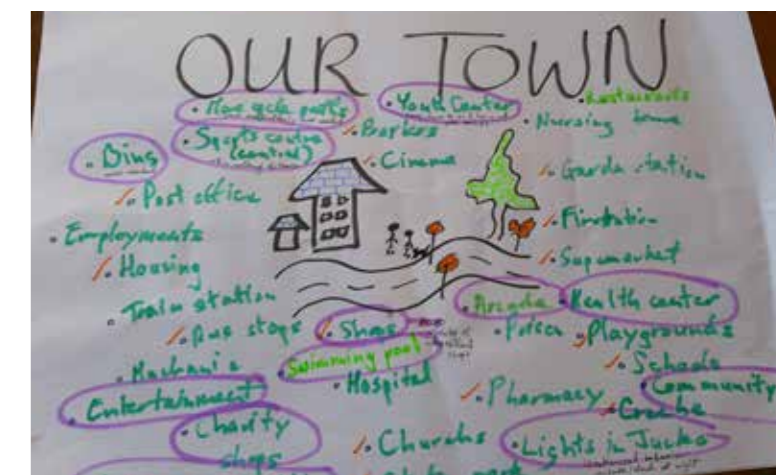 OUR TOWN
• More cycle paths
• Youth Center
• Restaurants
• Sports centre
(central)
• Bins
Barbers
• Nursing home
• Cinema
• Garda station
• Post office
• Employments
• Firestation
• Housing
• Supermarket
• Train station
• Arcade
• Health center
• Bus stops
• Shops
• Prison
• Playgrounds
• Mechanic
• Swimming pool
• Schools
• Entertainment
• Hospital
• Pharmacy
• Community
• Creche
• Charity
shops
• Churchs
• Lights in